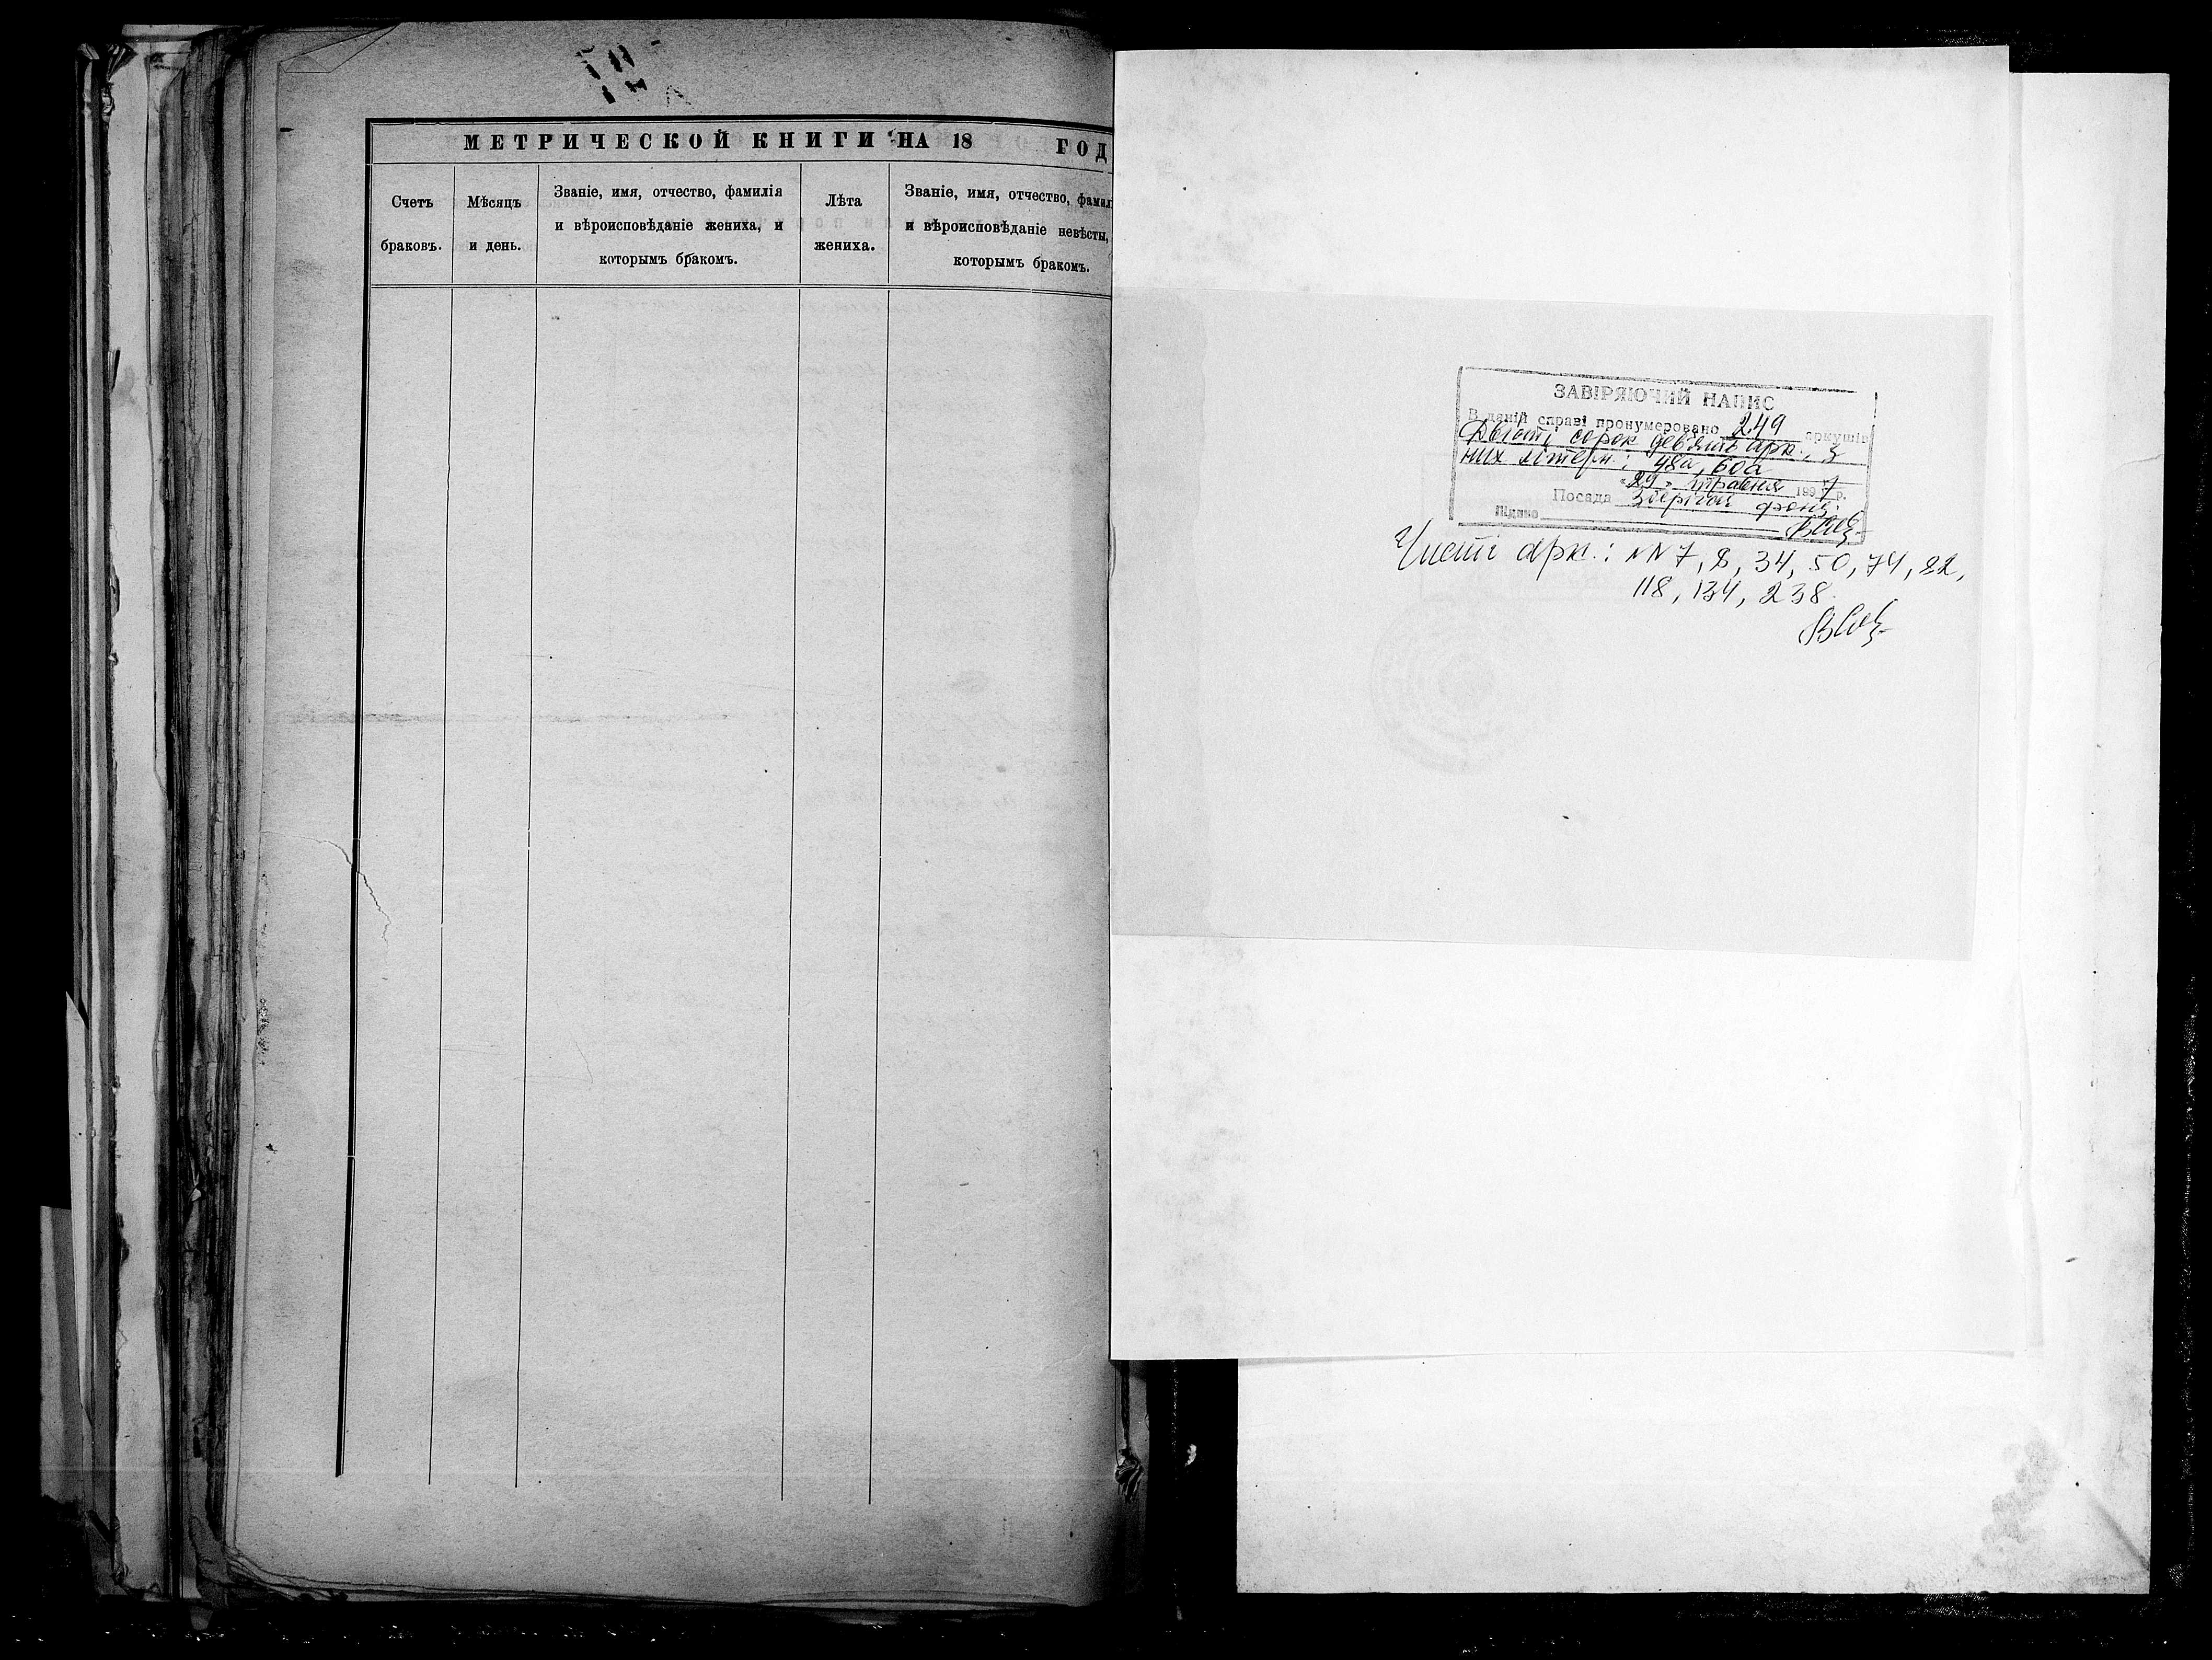 МЕТРИЧЕСКОЙ КНИГИ НА 18 ГОД
Счетъ
браковъ.
Мѣсяцъ
и день.
Званіе, имя, отчество, фамилія
и вѣроисповѣданіе жениха, и
которымъ бракомъ.
Лѣта
жениха.
Званіе, имя, отчество, фамил
и вѣроисповѣданіе невѣсты,
которымъ бракомъ.
ЗАВІРЯЮЧИЙ НАПИС
В даній справі пронумеровано 249 аркушів
Двісті сорок дев'ять арк., з
них літерн.: 48а, 60а
"29" травня 1997 р.
Посада Зберігач фонд.
Підпис
Чисті арк.: NN 7, 8, 34, 50, 74, 82,
118, 134, 238.